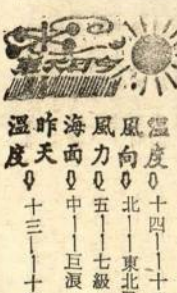 今日天氣
溫度⇩十四——十
風向⇩北——東北
風力⇩五——七級
海面⇩中——巨浪
昨天
溫度⇩十三——十